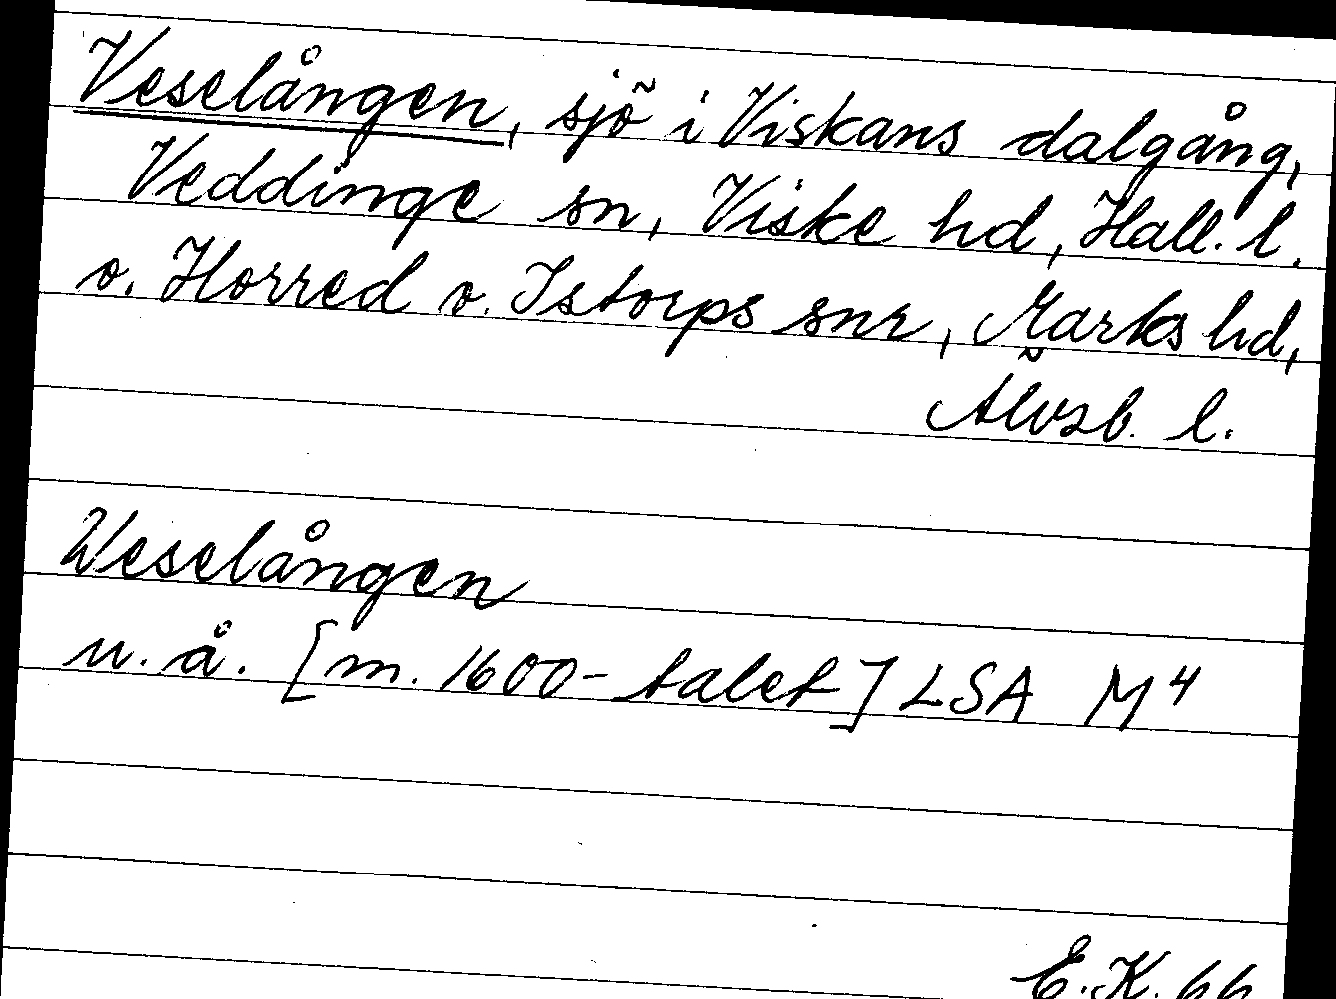 Veselången, sjö i Viskans dalgång,
Veddinge sn, Viske hd, Hall. l.
o. Horred o. Istorps snr, Marks hd,
Älvsb. l.
Weselången
u. å. [m. 1600-talet] LSA M4
E.K. 66